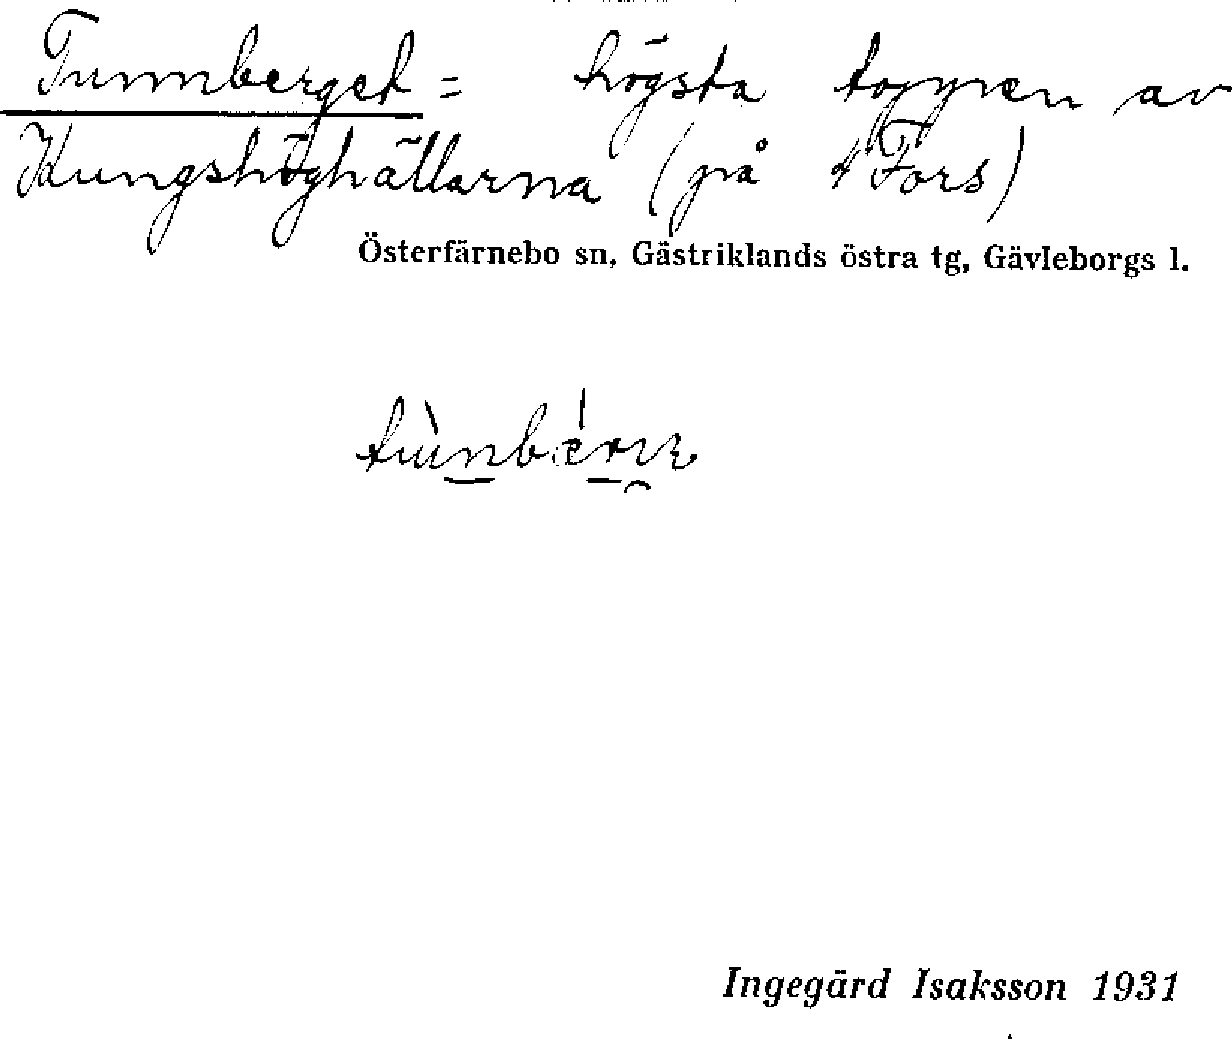 Tunnberget = högsta toppen av
Kungshöghällarna (på Fors)
Österfärnebo sn, Gästriklands östra tg, Gävleborgs l.
Ingegärd Isaksson 1931